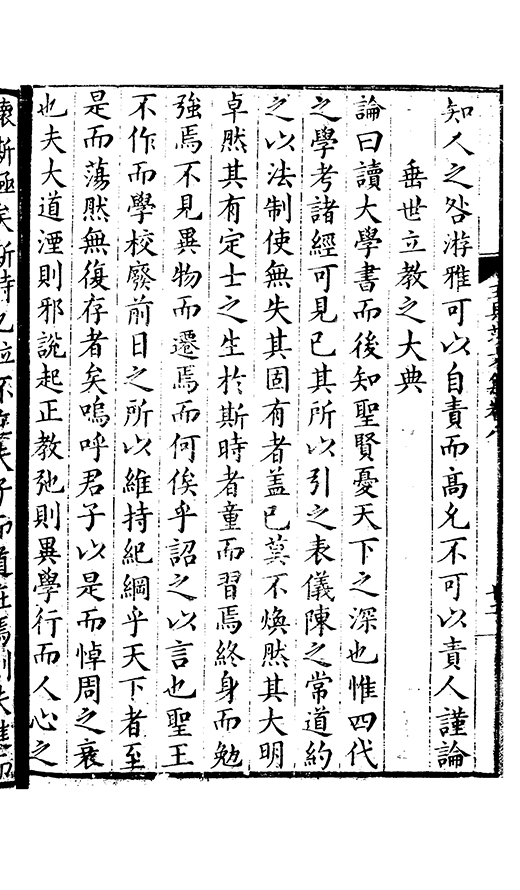 知人之咎游雅可以自責而高允不可以責人謹論
垂世立教之大典
論曰讀大學書而後知聖賢憂天下之深也惟四代
之學考諸經可見已其所以引之表儀陳之常道約
之以法制使無失其固有者盖已莫不煥然其大明
卓然其有定士之生於斯時者童而習焉終身而勉
強焉不見異物而遷焉而何俟乎詔之以言也聖王
不作而學校廢前日之所以維持紀綱乎天下者至
是而蕩然無復存者矣嗚呼君子以是而悼周之衰
也夫大道湮則邪說起正教弛則異學行而人心之